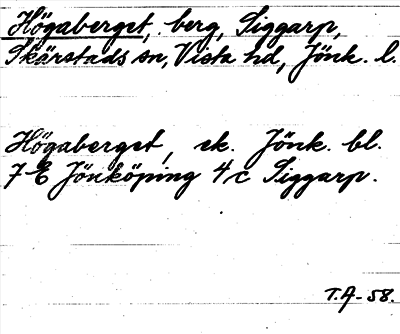 Högaberget, berg, Siggarp,
Skärstads sn, Vista hd, Jönk. l.
Högaberget, ek. Jönk. bl.
7 E Jönköping 4 c Siggarp.
T.A-58.